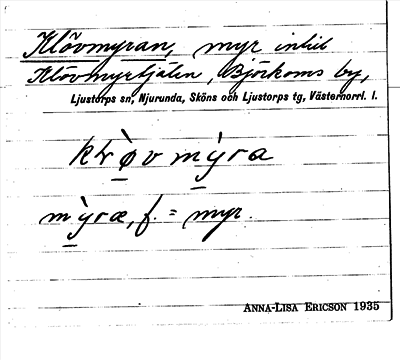 Klövmyran, myr intill
Klövmyrtjälen, Björkoms by,
Ljustorps sn, Njurunda, Sköns och Ljustorps tg, Västernorrl. l.
mỳra
mỳræ, f. = myr.
ANNA-LISA ERICSON 1935